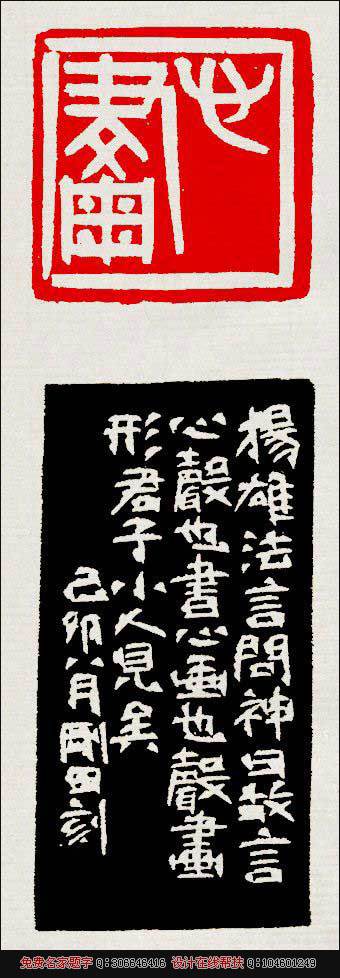 心畫
揚雄法言問神曰故言
心聲也書心畫也聲畫
形君子小人見矣
己卯八月剛田刻
免费名家题字 Q:306646416 设计在线帮扶 Q:104601249